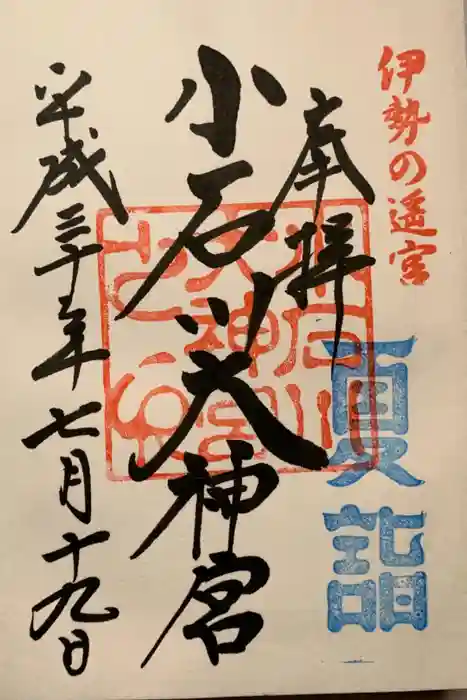 伊勢の遥宮
夏詣
奉拝
小石川大神宮
平成三十年七月十九日